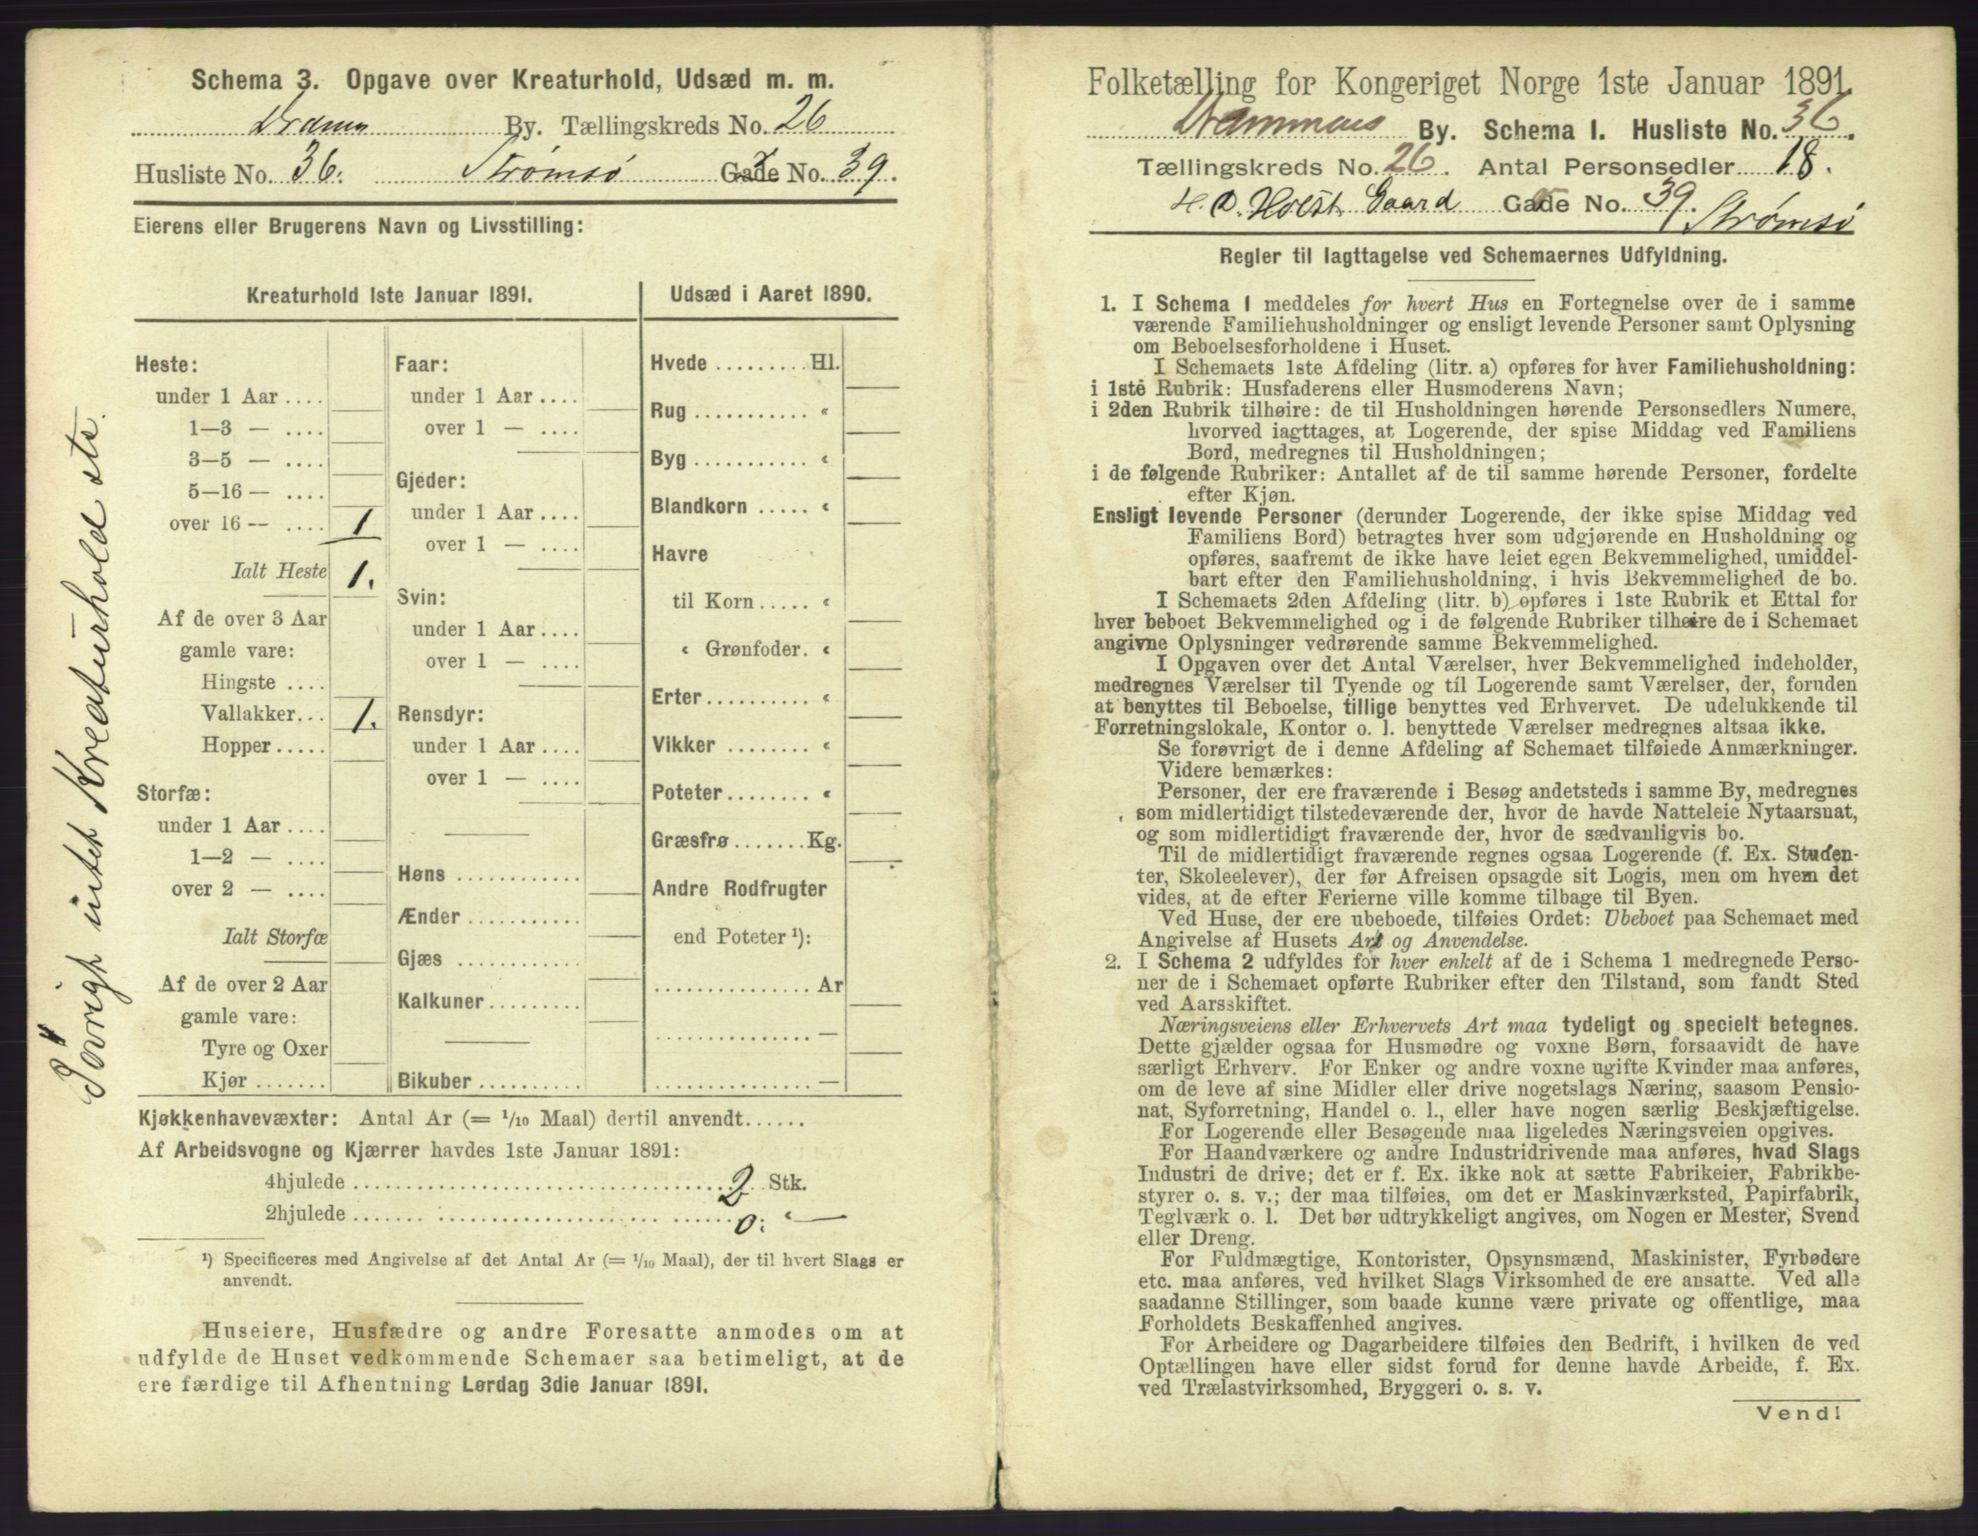 Schema 3. Opgave over Kreaturhold, Udsæd m. m.
Dramm By. Tællingskreds No. 26
Husliste No. 36. Strømsø Gade No. 39.
Eierens eller Brugerens Navn og Livsstilling:
Kreaturhold 1ste Januar 1891.
Heste:
under 1 Aar ....
1—3 — ....
3—5 — ....
5—16 — ....
over 16 — .... 1
Ialt Heste 1.
Af de over 3 Aar
gamle vare:
Hingste ....
Vallakker... 1.
Hopper .....
Storfæ:
under 1 Aar ....
1—2 — ....
over 2 — ....
Ialt Storfæ
Af de over 2 Aar
gamle vare:
Tyre og Oxer
Kjør .......
Faar:
under 1 Aar ....
over 1 — ....
Gjeder:
under 1 Aar ....
over 1 — ....
Svin:
under 1 Aar ....
over 1 — ....
Rensdyr:
under 1 Aar ....
over 1 — ....
Høns ............
Ænder ...........
Gjæs ............
Kalkuner.........
Bikuber ..........
Udsæd i Aaret 1890.
Hvede ......... Hl.
Rug ........... «
Byg ........... «
Blandkorn ..... «
Havre
til Korn ..... «
« Grønfoder. «
Erter .......... «
Vikker ........ «
Poteter ........ «
Græsfrø ....... Kg.
Andre Rodfrugter
end Poteter ¹):
................ Ar
................ —
................ —
Iøvrigt intet Kreaturhold etc.
Kjøkkenhavevæxter: Antal Ar (= 1/10 Maal) dertil anvendt......
Af Arbeidsvogne og Kjærrer havdes 1ste Januar 1891:
4hjulede .................................... 2 Stk.
2hjulede .................................... 0. « —
¹) Specificeres med Angivelse af det Antal Ar (= 1/10 Maal), der til hvert Slags er
anvendt.
Huseiere, Husfædre og andre Foresatte anmodes om at
udfylde de Huset vedkommende Schemaer saa betimeligt, at de
ere færdige til Afhentning Lørdag 3die Januar 1891.
Folketælling for Kongeriget Norge 1ste Januar 1891.
Drammens By. Schema 1. Husliste No. 36.
Tællingskreds No. 26. Antal Personsedler 18.
H. D. Holst Gaard Gade No. 39. Strømsø
Regler til Iagttagelse ved Schemaernes Udfyldning.
1. I Schema 1 meddeles for hvert Hus en Fortegnelse over de i samme
værende Familiehusholdninger og ensligt levende Personer samt Oplysning
om Beboelsesforholdene i Huset.
I Schemaets 1ste Afdeling (litr. a) opføres for hver Familiehusholdning:
i 1ste Rubrik: Husfaderens eller Husmoderens Navn;
i 2den Rubrik tilhøire: de til Husholdningen hørende Personsedlers Numere,
hvorved iagttages, at Logerende, der spise Middag ved Familiens
Bord, medregnes til Husholdningen;
i de følgende Rubriker: Antallet af de til samme hørende Personer, fordelte
efter Kjøn.
Ensligt levende Personer (derunder Logerende, der ikke spise Middag ved
Familiens Bord) betragtes hver som udgjørende en Husholdning og
opføres, saafremt de ikke have leiet egen Bekvemmelighed, umiddel-
bart efter den Familiehusholdning, i hvis Bekvemmelighed de bo.
I Schemaets 2den Afdeling (litr. b) opføres i 1ste Rubrik et Ettal for
hver beboet Bekvemmelighed og i de følgende Rubriker tilhøire de i Schemaet
angivne Oplysninger vedrørende samme Bekvemmelighed.
I Opgaven over det Antal Værelser, hver Bekvemmelighed indeholder,
medregnes Værelser til Tyende og til Logerende samt Værelser, der, foruden
at benyttes til Beboelse, tillige benyttes ved Erhvervet. De udelukkende til
Forretningslokale, Kontor o. l. benyttede Værelser medregnes altsaa ikke.
Se forøvrigt de i denne Afdeling af Schemaet tilføiede Anmærkninger.
Videre bemærkes:
Personer, der ere fraværende i Besøg andetsteds i samme By, medregnes
som midlertidigt tilstedeværende der, hvor de havde Natteleie Nytaarsnat,
og som midlertidigt fraværende der, hvor de sædvanligvis bo.
Til de midlertidigt fraværende regnes ogsaa Logerende (f. Ex. Studen-
ter, Skoleelever), der før Afreisen opsagde sit Logis, men om hvem det
vides, at de efter Ferierne ville komme tilbage til Byen.
Ved Huse, der ere ubeboede, tilføies Ordet: Ubeboet paa Schemaet med
Angivelse af Husets Art og Anvendelse.
2. I Schema 2 udfyldes for hver enkelt af de i Schema 1 medregnede Perso-
ner de i Schemaet opførte Rubriker efter den Tilstand, som fandt Sted
ved Aarsskiftet.
Næringsveiens eller Erhvervets Art maa tydeligt og specielt betegnes.
Dette gjælder ogsaa for Husmødre og voxne Børn, forsaavidt de have
særligt Erhverv. For Enker og andre voxne ugifte Kvinder maa anføres,
om de leve af sine Midler eller drive nogetslags Næring, saasom Pensio-
nat, Syforretning, Handel o. l., eller have nogen særlig Beskjæftigelse.
For Logerende eller Besøgende maa ligeledes Næringsveien opgives.
For Haandværkere og andre Industridrivende maa anføres, hvad Slags
Industri de drive; det er f. Ex. ikke nok at sætte Fabrikeier, Fabrikbe-
styrer o. s. v.; der maa tilføies, om det er Maskinværksted, Papirfabrik,
Teglværk o. l. Det bør udtrykkeligt angives, om Nogen er Mester, Svend
eller Dreng.
For Fuldmægtige, Kontorister, Opsynsmænd, Maskinister, Fyrbødere
etc. maa anføres, ved hvilket Slags Virksomhed de ere ansatte. Ved alle
saadanne Stillinger, som baade kunne være private og offentlige, maa
Forholdets Beskaffenhed angives.
For Arbeidere og Dagarbeidere tilføies den Bedrift, i hvilken de ved
Optællingen have eller sidst forud for denne havde Arbeide, f. Ex.
ved Trælastvirksomhed, Bryggeri o. s. v.
Vend!